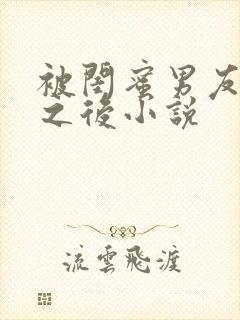 被閨蜜男友
之後小説
流雲飛渡